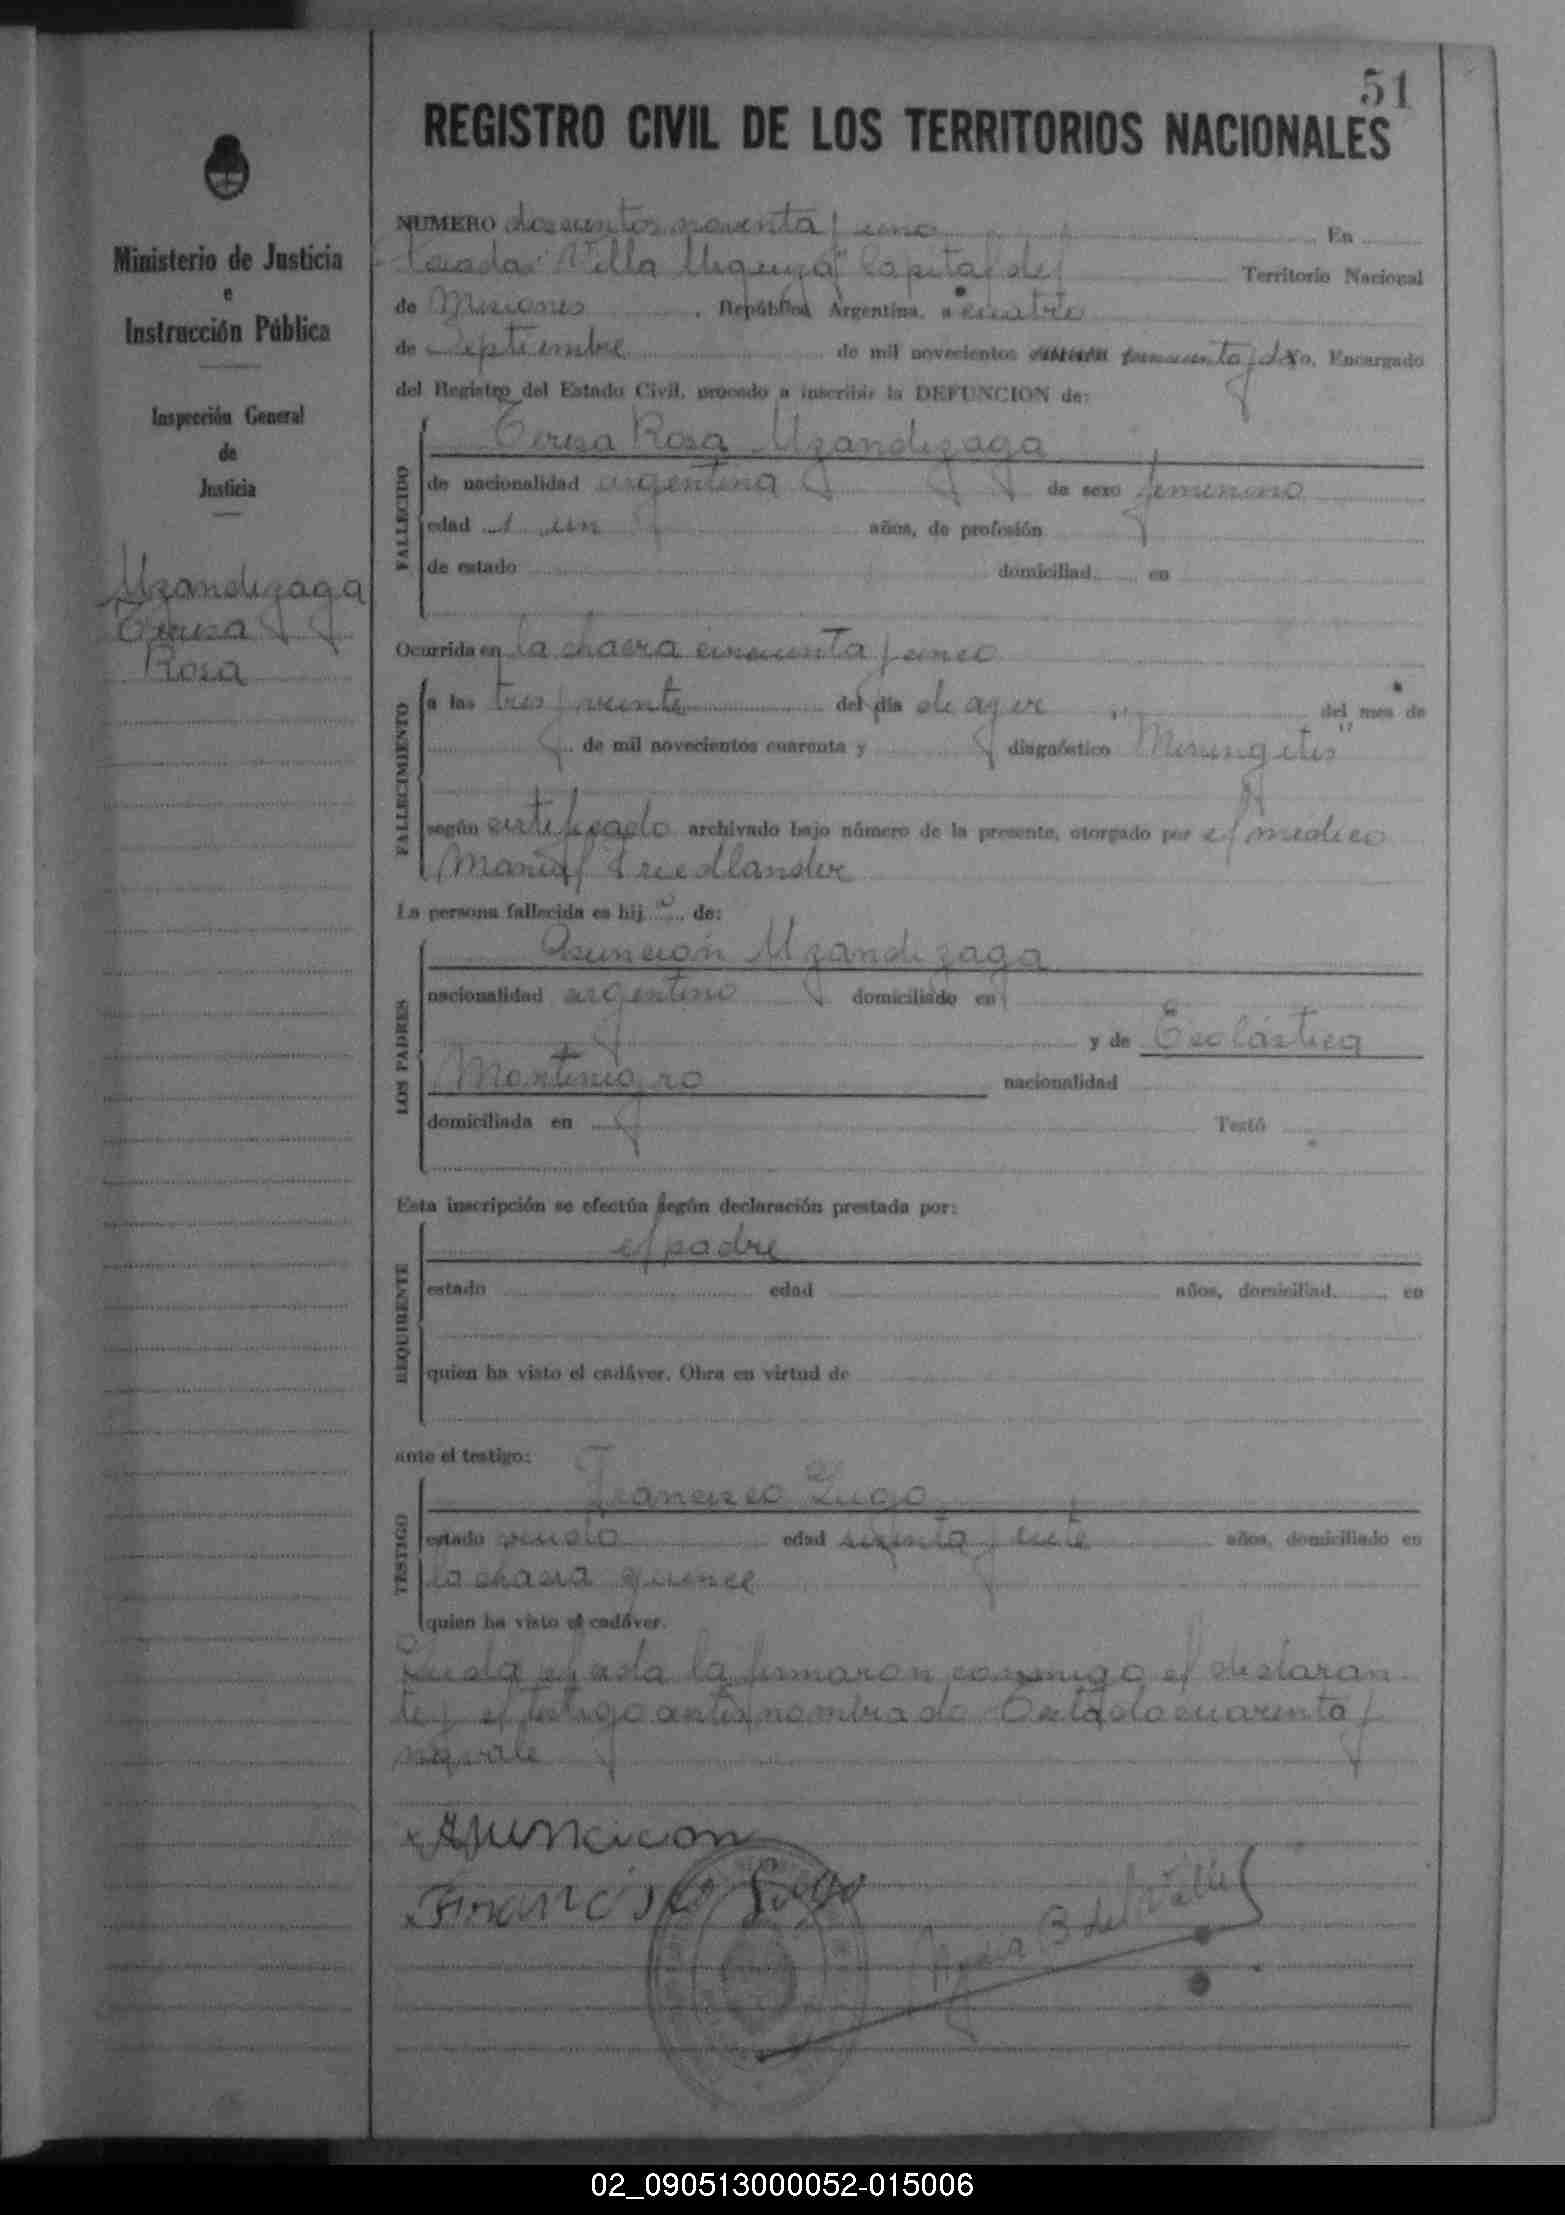 51
REGISTRO CIVIL DE LOS TERRITORIOS NACIONALES
Ministerio de Justicia
e
Instrucción Pública
Inspección General
de
Justicia
Uzandizaga
Teresa
Rosa
NUMERO doscientos noventa y uno En
"Villa Urquiza" Capital del Territorio Nacional
de Misiones, República Argentina, a cuatro
de Septiembre de mil novecientos Yo, Encargado
del Registro del Estado Civil, procedo a inscribir la DEFUNCION de:
FALLECIDO
Teresa Rosa Uzandizaga
de nacionalidad argentina de sexo femenino
edad 1 un años, de profesión
de estado domiciliad en
Ocurrida en la chacra cincuenta y cinco
FALLECIMIENTO
a las tres y veinte del dia de ayer del mes de
de mil novecientos cuarenta y diagnóstico Meningitis
según certificado archivado bajo número de la presente, otorgado por el médico
Friedlander
La persona fallecida es hij a de:
LOS PADRES
Asunción Uzandizaga
nacionalidad argentino domiciliado en
y de Escolástica
Montenegro nacionalidad
domiciliada en Testó
Esta inscripción se efectúa según declaración prestada por:
REQUIRENTE
el padre
estado edad años, domiciliad en
quien ha visto el cadáver. Obra en virtud de
ante el testigo:
TESTIGO
Francisco Lugo
estado viudo edad sesenta y siete años, domiciliado en
la chacra quince
quien ha visto el cadáver.
Leida el acta la firmaron conmigo el declaran
te y el testigo antes nombrado. Testado cuarenta y
no vale
Asuncion
Francisco Lugo
B del Valle
02_090513000052-015006